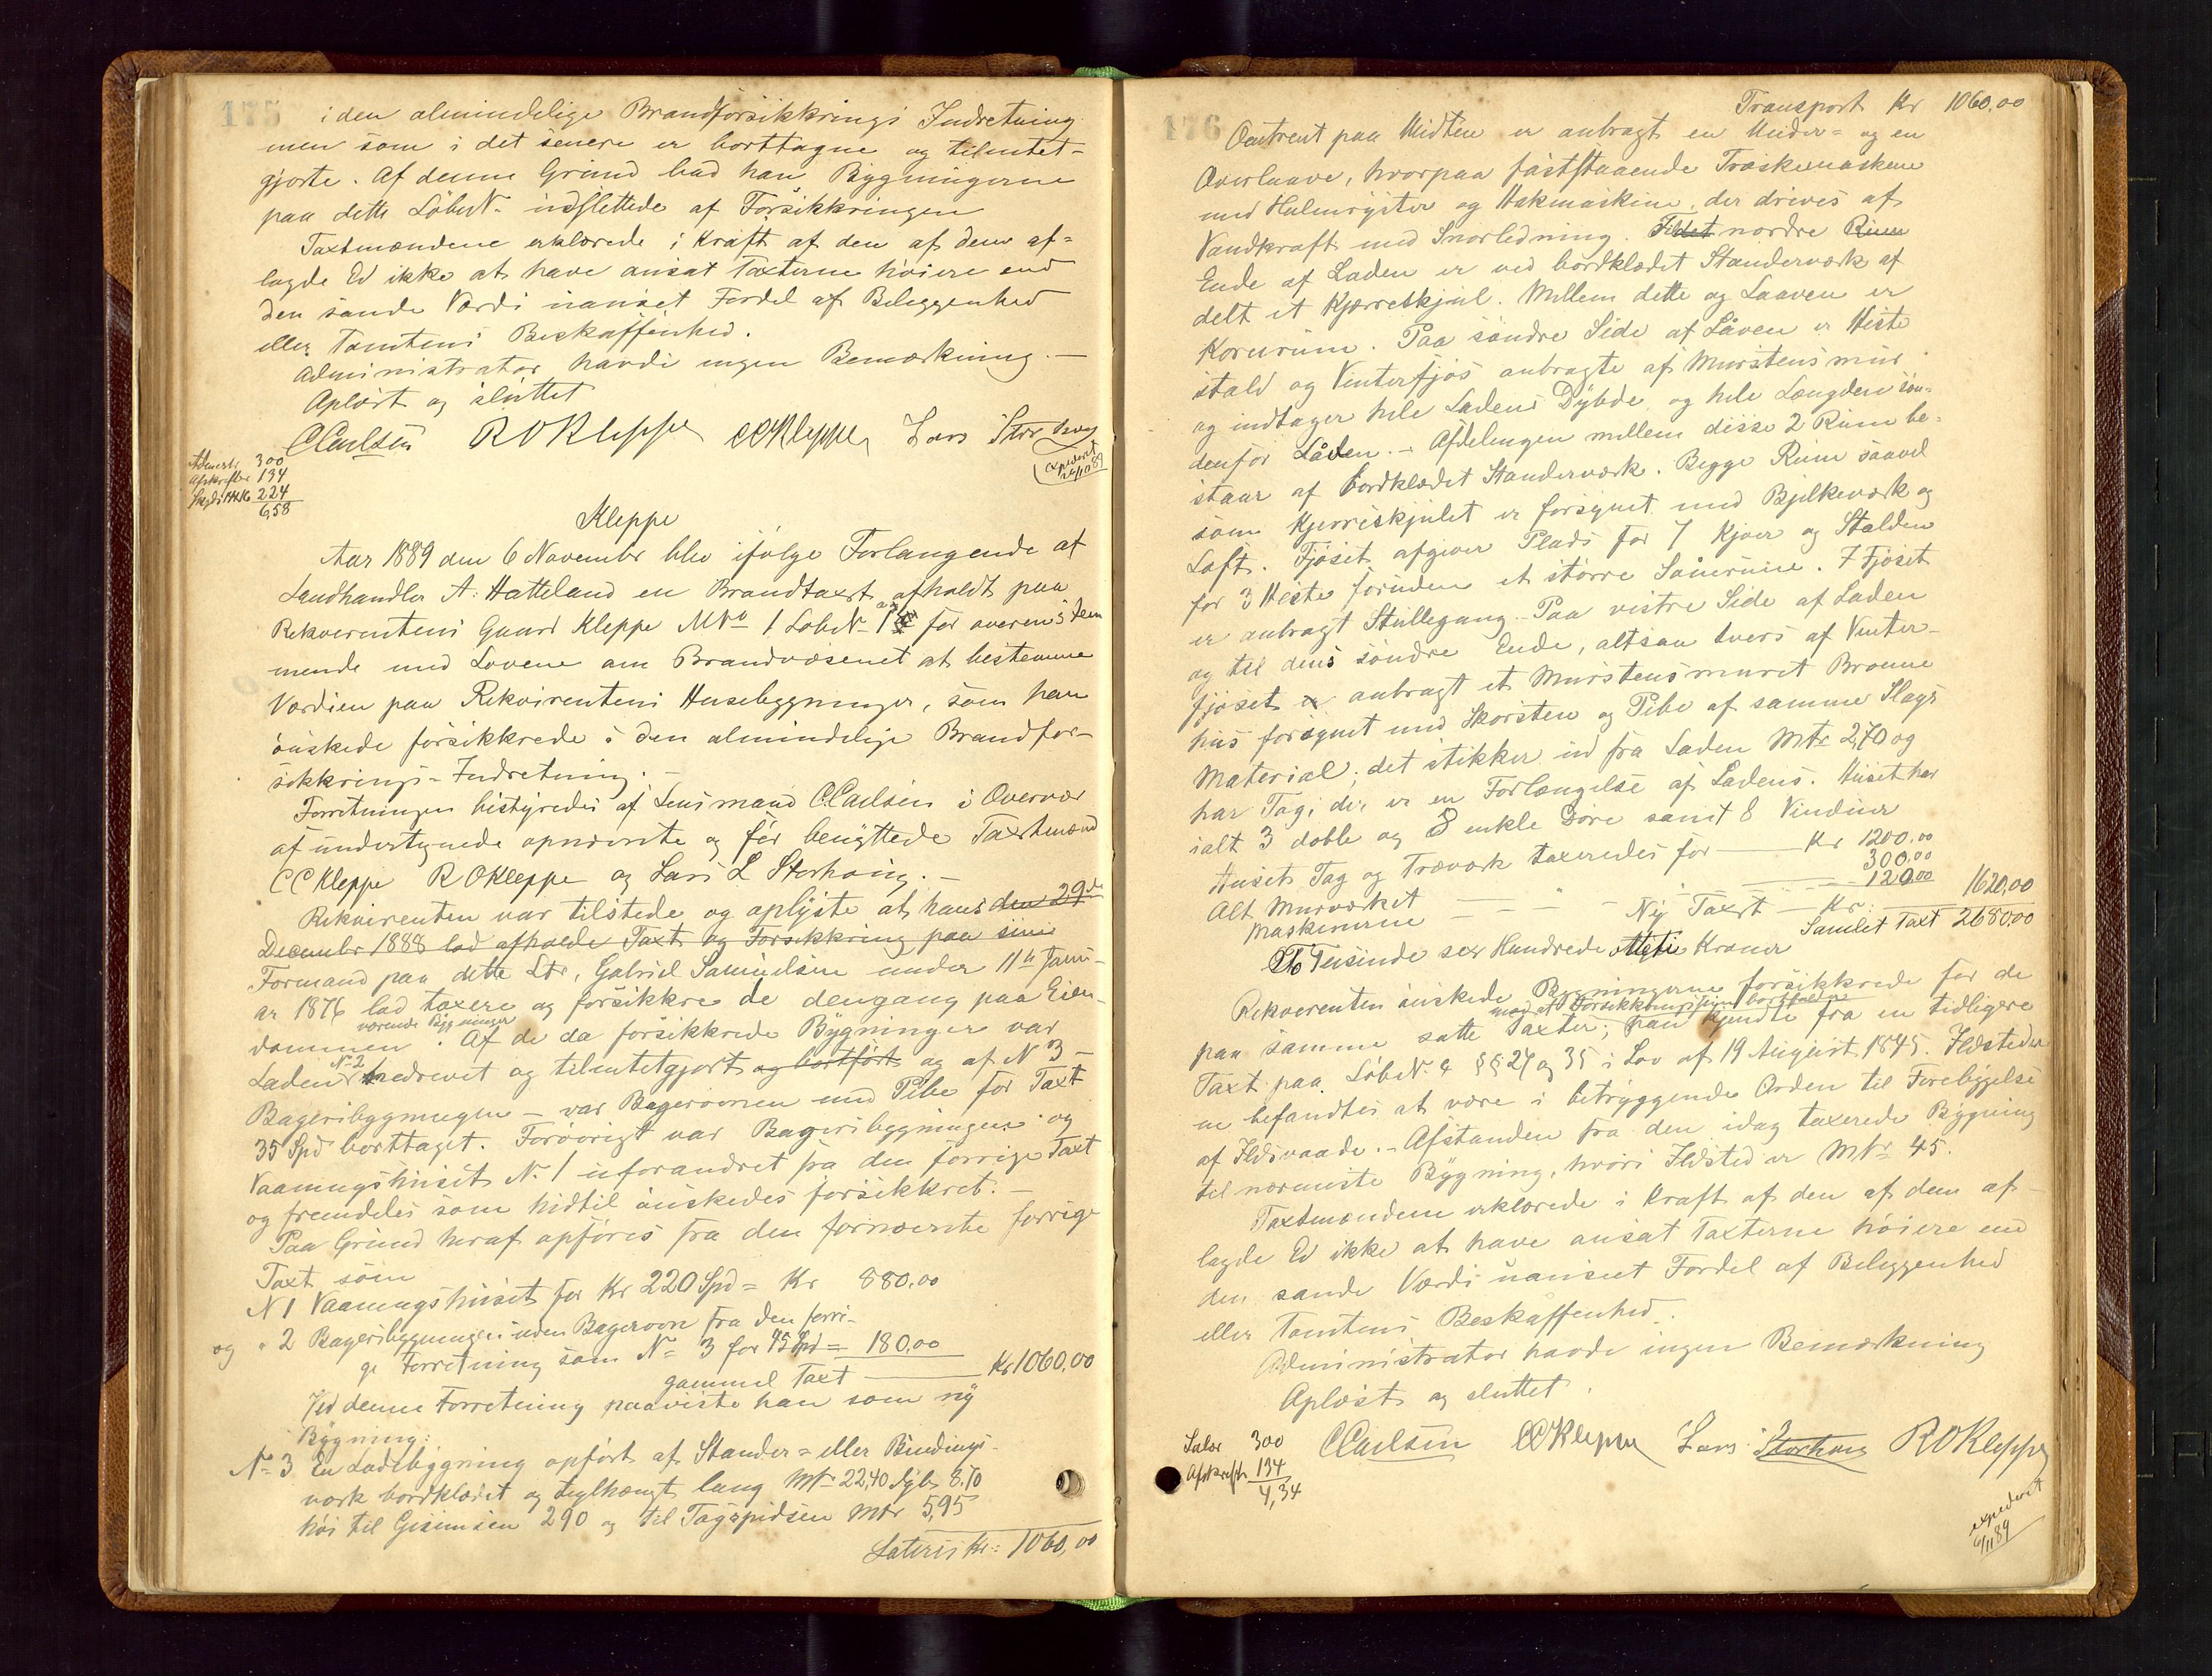 175
i den almindelige Brandforsikkrings Indretning
men som i det senere er borttagne og tilintet-
gjorte. Af denne Grund bad han Bygningerne
paa dette LøbeN. udslettede af Forsikkringen
Taxtmændene erklærede i Kraft af den af dem af-
lagde Ed ikke at have ansat Taxterne høiere end
den sande Værdi uanseet Fordel af Beliggenhed
eller Tomtens Beskaffenhed.
Administrator havde ingen Bemærkning. —
Oplæst og sluttet
CCarlsen ROKleppe CCKleppe Lars Storhoug
expederet
24/10 89
Admstr. 300
Afskrifter 134
224
6,58
Kleppe
Aar 1889 den 6 November blev ifølge Forlangende af
Landhandler A. Hatteland en Brandtaxt afholdt paa
Rekvirentens Gaard Kleppe MNo 1 LøbeN. 1 for overens stem
mende med Lovene om Brandvæsenet at bestemme
Værdien paa Rekvirentens Husebygninger, som han
ønskede forsikkrede i den almindelige Brandfor-
sikkrings-Indretning. —
Forretningen bestyredes af Lensmand CCarlsen i Overvær
af undertegnede opnævnte og før benyttede Taxtmænd
CCKleppe ROKleppe og Lars L Storhoug. —
Rekvirenten var tilstede og oplyste at hans den 29de
December 1888 lod afholde Taxt og Forsikkring paa sine
Formand paa dette Lbr, Gabriel Samuelsen under 11te Janu-
ar 1876 lod taxere og forsikkre de dengang paa Eien-
værende Bygninger
dommen. Af de da forsikkrede Bygninger var
Laden No 2 nedrevet og tilintetgjort og bortført og af N 3 —
Bageribygningen — var Bagerovnen med Pibe for Taxt
35 Spd borttaget. Forøvrigt var Bageribygningen og
Vaaningshuset N. 1 uforandret fra den forrige Taxt
og fremdeles som hidtil ønskedes forsikkret. —
Paa Grund heraf opføres fra den fornævnte forrige
Taxt som
N 1 Vaaningshuset for Kr 220 Spd = Kr 880.00
og " 2 Bageribygningen uden Bagerovn fra den forri-
ge Forretning som No 3 for 45 Spd = 180,00
gammel Taxt — Kr 1060,00
Ved denne Forretning paaviste han som ny
Bygning:
No 3 En Ladebygning opført af Stander- eller Bindings-
værk bordklædet og teglhængt lang Mtr 22,40 dyb 8.70
høi til Gesimsen 290 og til Tagspidsen Mtr 5,95
Lateris Kr: 1060,00
176
Transport Kr 1060,00
Omtrent paa Midten er anbragt en Under- og en
Overlaave, hvorpaa faststaaende Træskemaskine
med Halmryster og Hakmaskine, der drives af
Vandkraft med Snorledning. nordre Rum
Ende af Laden er ved bordklædet Standerværk af
delt et Kjærreskjul. Mellem dette og Laaven er
Kornrum. Paa søndre Side af Låven er Heste
stald og Vinterfjøs anbragte af Murstensmur
og indtager hele Ladens Dybde og hele Længden søn-
denfor Låden. — Afdelingen mellem disse 2 Rum be-
staar af bordklædet Standerværk. Begge Rum saavel
som Kjerreskjulet er forsynet med Bjelkeværk og
Loft. Fjøset afgiver Plads for 7 Kjøer og Stalden
for 3 Heste foruden et større Rum. I Fjøset
er anbragt Stillegang. Paa vestre Side af Laden
og til dens søndre Ende, altsaa tvers af Vinter-
fjøset er anbragt et Murstensmuret Brønne
hus forsynet med Skorsten og Pibe af samme Slags
Material; det stikker ud fra Laden Mtr 2,70 og
har Tag, der er en Forlængelse af Ladens. Huset har
ialt 3 doble og 8 enkle Døre samt 8 Vinduer
Husets Tag og Træværk taxeredes for — Kr 1200.00
Alt Murværket — " — 300.00
Maskinerne — — 120.00
Ny Taxt — Kr. 1620,00
Samlet Taxt 2680,00
To Tusinde sex Hundrede Otteti Kroner
Rekvirenten ønskede Bygningerne forsikkrede for de
paa samme satte Taxter; han kjendte fra en tidligere
Taxt paa LøbeN. 4 §§ 27 og 35 i Lov af 19 August 1845. Ildstede
ne befandtes at være i betryggende Orden til Forebyggelse
af Ildsvaade. — Afstanden fra den idag taxerede Bygning
til nærmeste Bygning, hvori Ildsted er Mtr 45.
Taxtmændene erklærede i Kraft af den af dem af-
lagde Ed ikke at have ansat Taxterne høiere end
den sande Værdi uanseet Fordel af Beliggenhed
eller Tomtens Beskaffenhed.
Administrator havde ingen Bemærkning
Oplæst og sluttet.
CCarlsen CCKleppe Lars Storhoug ROKleppe
Salær 300
Afskrift 134
4,34
expederet
6/11 89